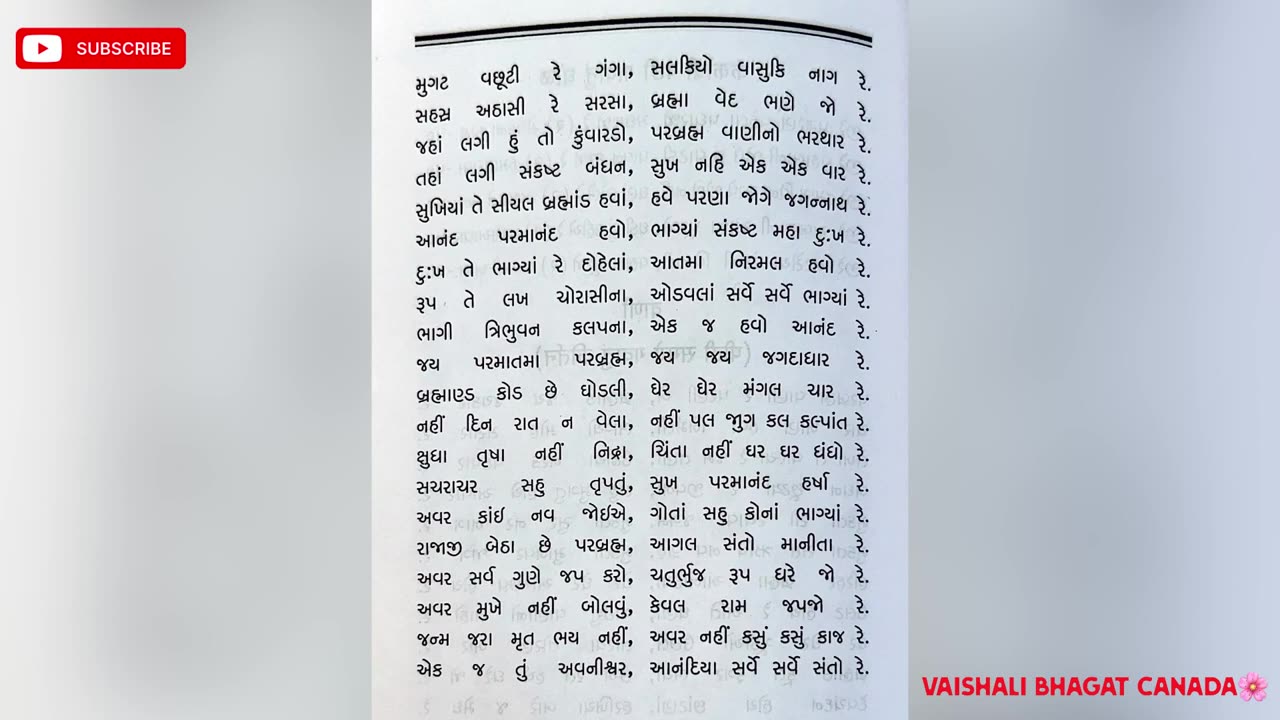 SUBSCRIBE
મુગટ વછૂટી રે ગંગા, સલકિયો વાસુકિ નાગ રે.
સહસ્ર અઠાસી રે સરસા, બ્રહ્મા વેદ ભણે જો રે.
જહાં લગી હું તો કુંવારડો, પરબ્રહ્મ વાણીનો ભરથાર રે.
તહાં લગી સંકષ્ટ બંધન, સુખ નહિ એક એક વાર રે.
સુખિયાં તે સીયલ બ્રહ્માંડ હવાં, હવે પરણા જોગે જગન્નાથ રે.
આનંદ પરમાનંદ હવો, ભાગ્યાં સંકષ્ટ મહા દુ:ખ રે.
દુ:ખ તે ભાગ્યાં રે દોહેલાં, આતમા નિરમલ હવો રે.
રૂપ તે લખ ચોરાસીના, ઓડવલાં સર્વે સર્વે ભાગ્યાં રે.
ભાગી ત્રિભુવન કલપના, એક જ હવો આનંદ રે.
જય પરમાતમાં પરબ્રહ્મ, જય જય જગદાધાર રે.
બ્રહ્માણ્ડ કોડ છે ઘોડલી, ઘેર ઘેર મંગલ ચાર રે.
નહીં દિન રાત ન વેલા, નહીં પલ જુગ કલ કલ્પાંત રે.
ક્ષુધા તૃષા નહીં નિદ્રા, ચિંતા નહીં ઘર ઘર ધંધો રે.
સચરાચર સહુ તૃપતું, સુખ પરમાનંદ હર્ષા રે.
અવર કાંઈ નવ જોઈએ, ગોતાં સહુ કોનાં ભાગ્યાં રે.
રાજાજી બેઠા છે પરબ્રહ્મ, આગલ સંતો માનીતા રે.
અવર સર્વ ગુણે જપ કરો, ચતુર્ભુજ રૂપ ધરે જો રે.
અવર મુખે નહીં બોલવું, કેવલ રામ જપજો રે.
જન્મ જરા મૃત ભય નહીં, અવર નહીં કસું કસું કાજ રે.
એક જ તું અવનીશ્વર, આનંદિયા સર્વે સર્વે સંતો રે.
VAISHALI BHAGAT CANADA